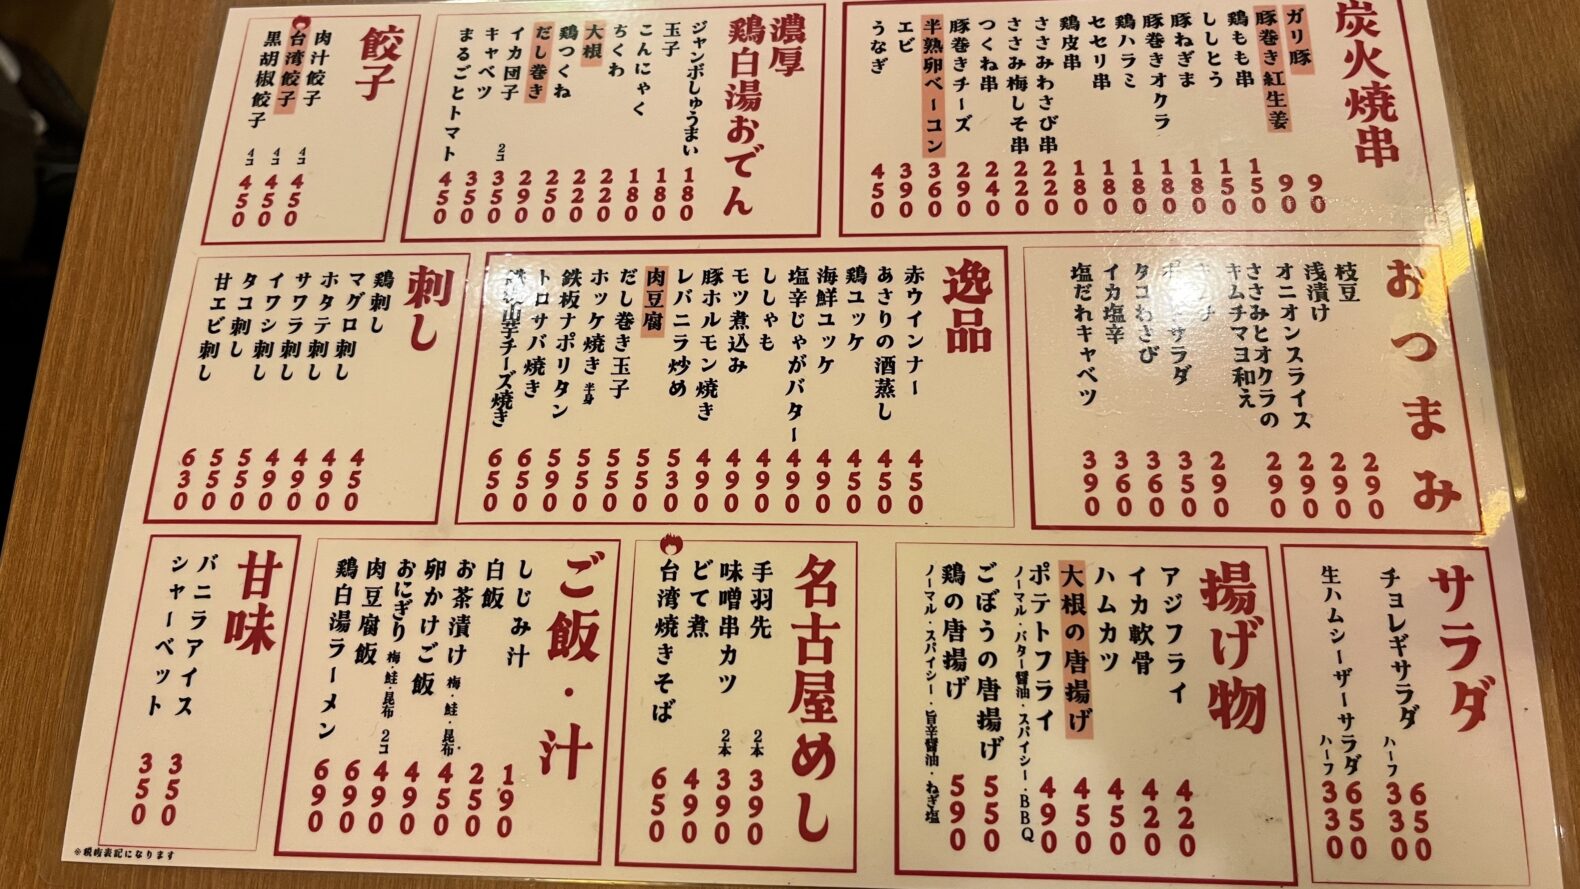 炭火焼串
ガリ豚 90
豚巻き紅生姜 90
鶏もも串 150
ししとう 150
豚ねぎま 180
豚巻きオクラ 180
鶏ハラミ 180
セセリ串 180
鶏皮串 180
ささみわさび串 220
ささみ梅しそ串 220
つくね串 240
豚巻きチーズ 290
半熟卵ベーコン 360
エビ 390
うなぎ 450
濃厚
鶏白湯おでん
ジャンボしゅうまい 180
玉子 180
こんにゃく 180
ちくわ 220
大根 220
鶏つくね 220
だし巻き 250
イカ団子 290
キャベツ 2コ 350
まるごとトマト 350
450
餃子
肉汁餃子 4コ 450
台湾餃子 4コ 450
黒胡椒餃子 4コ 450
おつまみ
枝豆 290
浅漬け 290
オニオンスライス 290
ささみとオクラの
キムチマヨ和え 290
290
サラダ 350
タコわさび 360
イカ塩辛 360
塩だれキャベツ 390
逸品
赤ウインナー 450
あさりの酒蒸し 450
鶏ユッケ 450
海鮮ユッケ 490
塩辛じゃがバター 490
ししゃも 490
モツ煮込み 490
豚ホルモン焼き 490
レバニラ炒め 530
肉豆腐 550
だし巻き玉子 550
ホッケ焼き 半身 550
鉄板ナポリタン 590
トロサバ焼き 650
山芋チーズ焼き 650
刺し
鶏刺し 450
マグロ刺し 490
ホタテ刺し 490
サワラ刺し 490
イワシ刺し 550
タコ刺し 550
甘エビ刺し 630
サラダ
チョレギサラダ 650
ハーフ 330
生ハムシーザーサラダ 650
ハーフ 330
揚げ物
アジフライ 420
イカ軟骨 420
ハムカツ 450
大根の唐揚げ 450
ポテトフライ 490
ノーマル・バター醤油・スパイシー・BBQ
ごぼうの唐揚げ 550
鶏の唐揚げ 590
ノーマル・スパイシー・旨辛醤油・ねぎ塩
名古屋めし
手羽先 2本 390
味噌串カツ 2本 390
どて煮 490
台湾焼きそば 650
ご飯・汁
しじみ汁 190
白飯 250
お茶漬け 梅・鮭・昆布 450
卵かけご飯 490
おにぎり 梅・鮭・昆布 2コ 490
肉豆腐飯 690
鶏白湯ラーメン 690
甘味
バニラアイス 350
シャーベット 350
※税抜表記になります